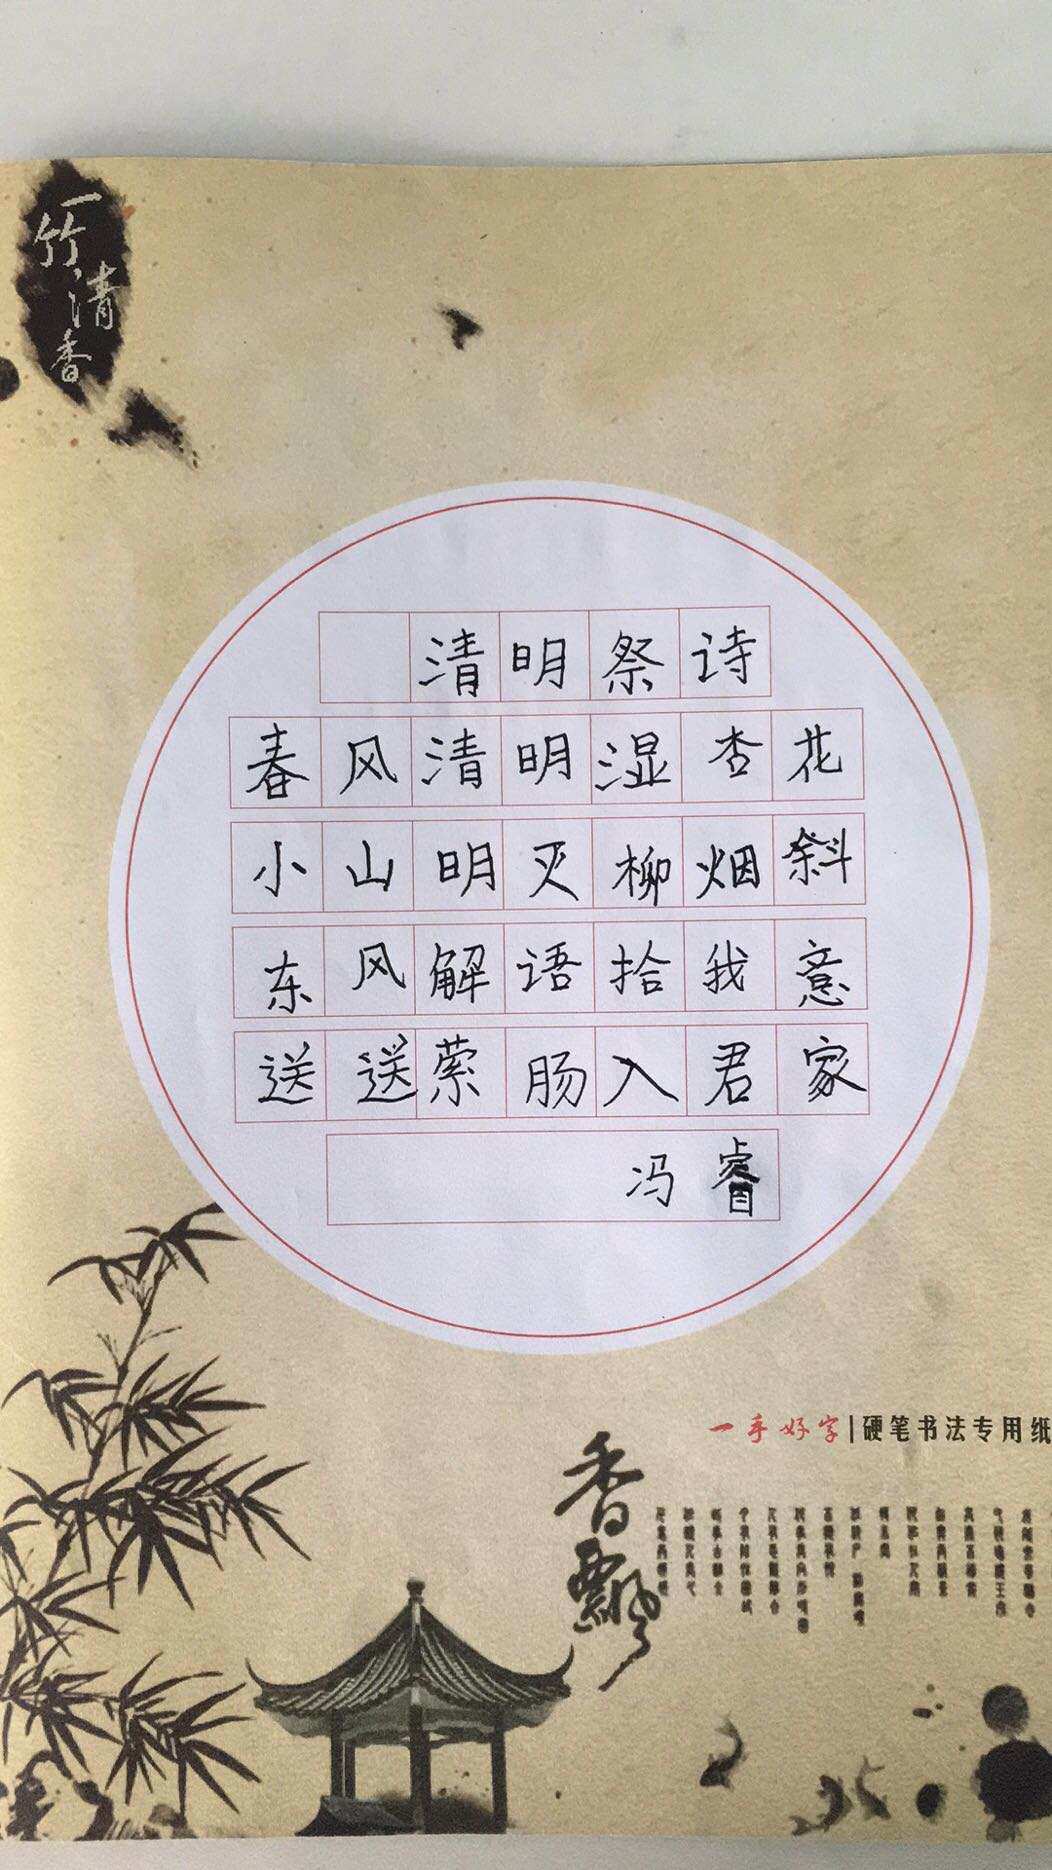 一竹、清香
清明祭诗
春风清明湿杏花
小山明灭柳烟斜
东风解语拾我意
送送萦肠入君家
冯睿
一手好字|硬笔书法专用纸
香飘